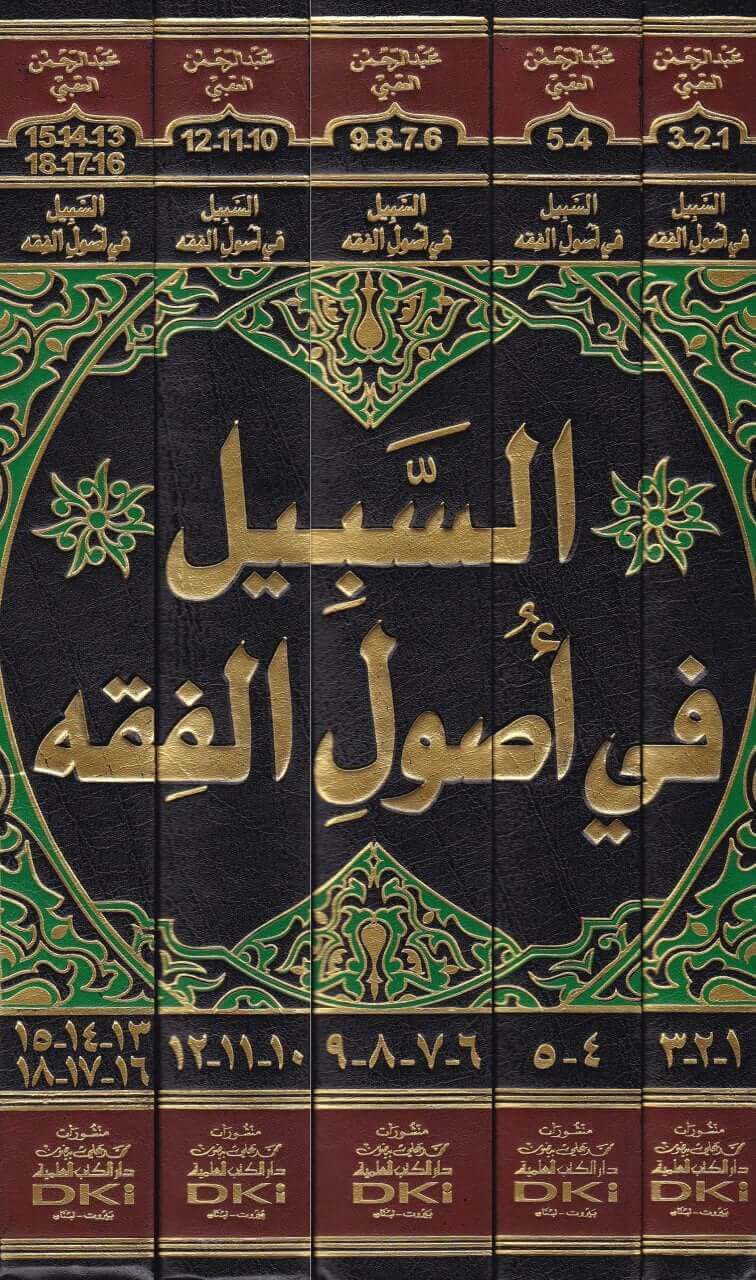 عبدالرحمن
العقبي
3-2-1
السبيل
في أصول الفقه
عبدالرحمن
العقبي
5-4
السبيل
في أصول الفقه
عبدالرحمن
العقبي
9-8-7-6
السبيل
في أصول الفقه
عبدالرحمن
العقبي
12-11-10
السبيل
في أصول الفقه
عبدالرحمن
العقبي
15-14-13
18-17-16
السبيل
في أصول الفقه
السَّبِيل
في أُصولِ الفِقه
١-٢-٣
منشورات
محمد علي بيضون
دار الكتب العلمية
DKi
بيروت - لبنان
٤-٥
منشورات
محمد علي بيضون
دار الكتب العلمية
DKi
بيروت - لبنان
٦-٧-٨-٩
منشورات
محمد علي بيضون
دار الكتب العلمية
DKi
بيروت - لبنان
١٠-١١-١٢
منشورات
محمد علي بيضون
دار الكتب العلمية
DKi
بيروت - لبنان
١٣-١٤-١٥
١٦-١٧-١٨
منشورات
محمد علي بيضون
دار الكتب العلمية
DKi
بيروت - لبنان